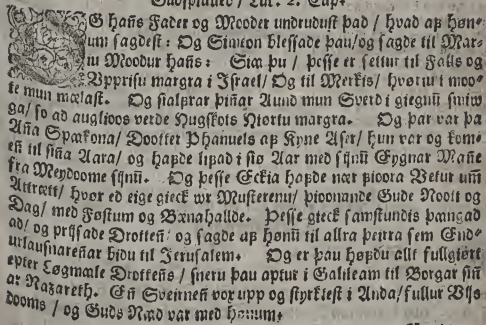 Gudspialled / Luc. 2. Cap.
OG hans Fader og Mooder undrudust þad / hvad af hønum
sagdest: Og Simeon blessade þau / og sagde til Mariu
Moodur hans: Siaa þu / þesse er settur til Falls og
Vpprisu margra i Israel / Og til Merkis / hvøriu i moote
mun mælast. Og sialfrar þinnar Aund mun Sverd i giegnum smiuga
/ so ad auglioos verde Hugskots Hiørtu margra. Og þar var þa
Anna Spækona / Dootter Phanuels af Kyne Aser / hun var og komen
til sinna Aara / og hafde lifad i siø Aar med sijnum Eygnar Manne
fra Meydoome sijnum. Og þesse Eckia hafde nær fioora Vetur um
Attrætt / hvør ed eige gieck wr Musterenu / þioonande Gude Noott og
Dag / med Føstum og Bænahallde. Þesse gieck samstundis þangad
ad / og prijsade Drotten / og sagde af hønum til allra þeirra sem Endurlausnarennar
bidu til Jerusalem. Og er þau høfdu allt fullgiørt
epter Løgmaale Drottens / sneru þau aptur i Galileam til Borgar sinnar
Nazareth. En Sveirnen vox upp og styrktest i Anda / fullur Vijsdooms
/ og Guds Naad var med hønum.